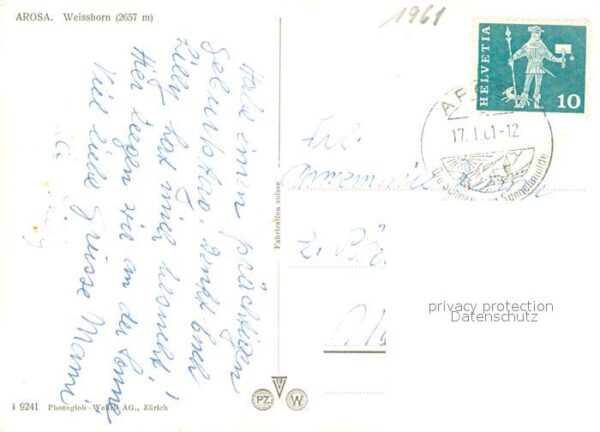 AROSA. Weisshorn (2657 m)
1961
HELVETIA
10
AROSA
17.I.61-12
Habe einen prächtigen
Geburtstag, denkt Euch
Lilly hat mich besucht!
Hier liegen wir an der Sonne
Viel liebe Grüsse Mami
Frl.
Fabrication suisse
privacy protection
Datenschutz
PZ
W
i 9241 Photoglob-Wehrli AG., Zürich